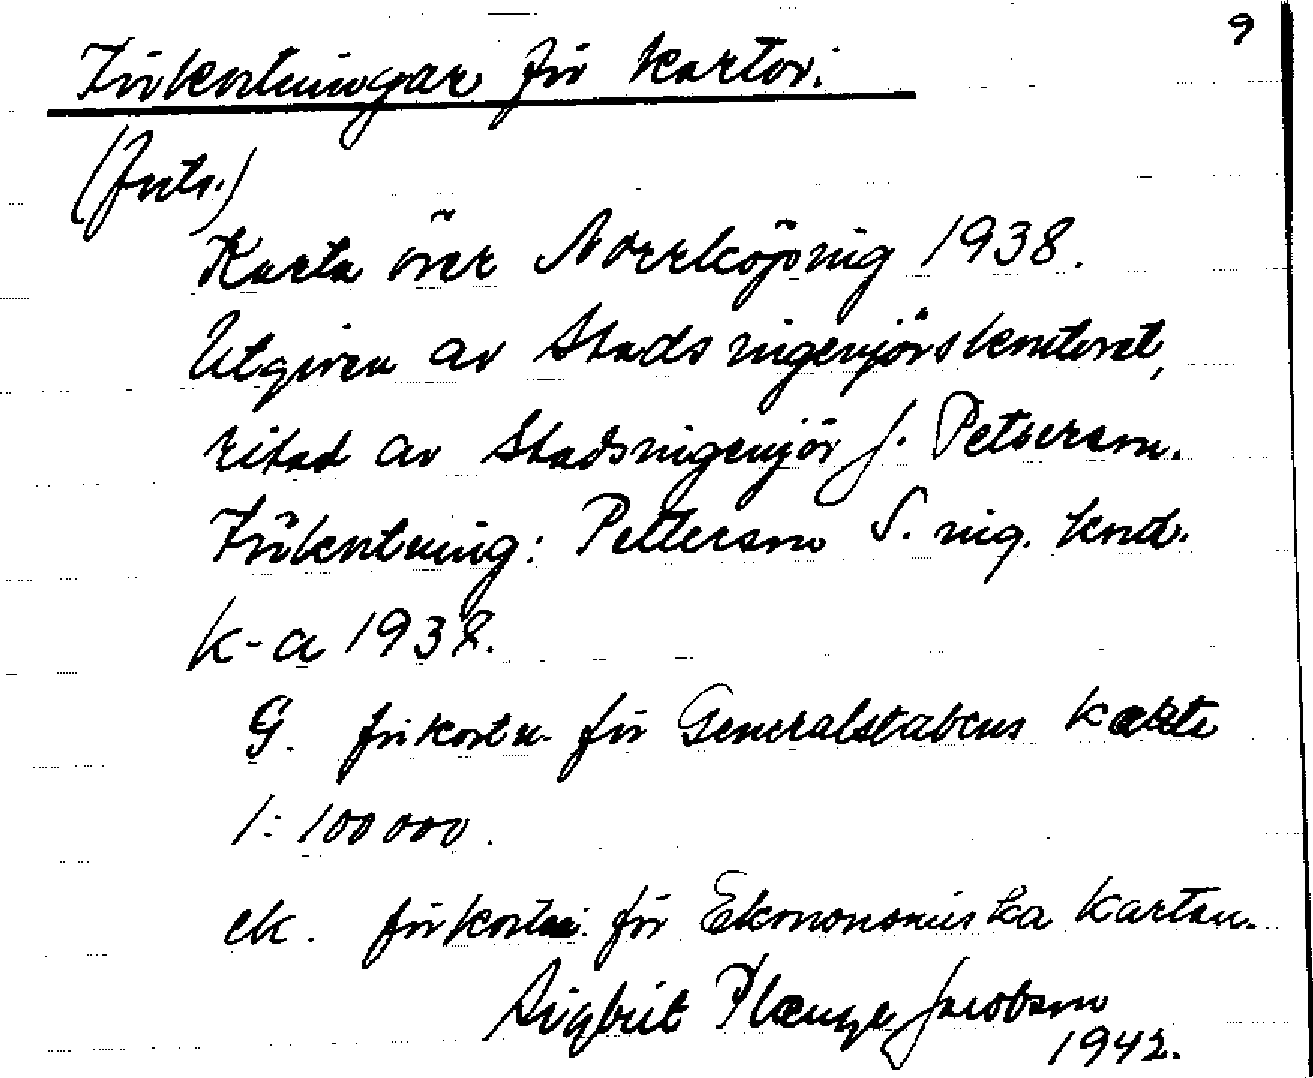 9
Förkortningar för kartor.
(forts.)
Karta över Norrköping 1938.
Utgiven av Stadsingenjörskontoret,
ritad av Stadsingenjör J. Petterson.
Förkortning: Petterson S. ing. knt.
k-a 1938.
G. förkortn. för Generalstabens karta
1:100000.
ek. förkortn. för Ekononomiska kartan.
Sigbrit Plænge Jacobson
1942.